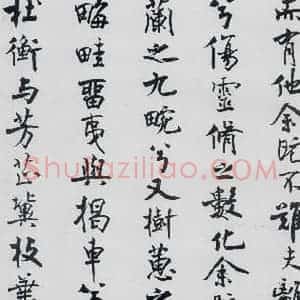 而有他余既不難夫離
兮傷靈脩之數化余既
蘭之九畹兮又樹蕙之
畮畦畱夷與揭車兮
杜衡与芳芷冀枝葉
Shufaziliao.com